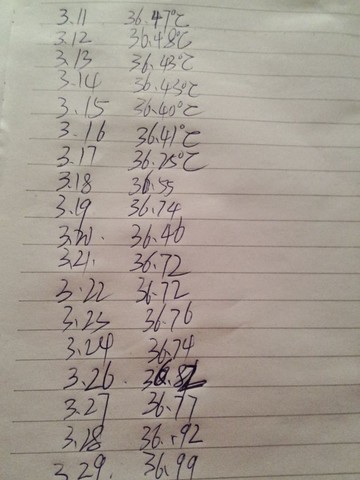 3.11 36.47°C
3.12 36.48°C
3.13 36.43°C
3.14 36.43°C
3.15 36.40°C
3.16 36.41°C
3.17 36.25°C
3.18 36.55
3.19 36.74
3.20. 36.46
3.21. 36.72
3.22 36.72
3.23 36.76
3.24 36.74
3.26.
3.27 36.77
3.28 36.92
3.29. 36.99